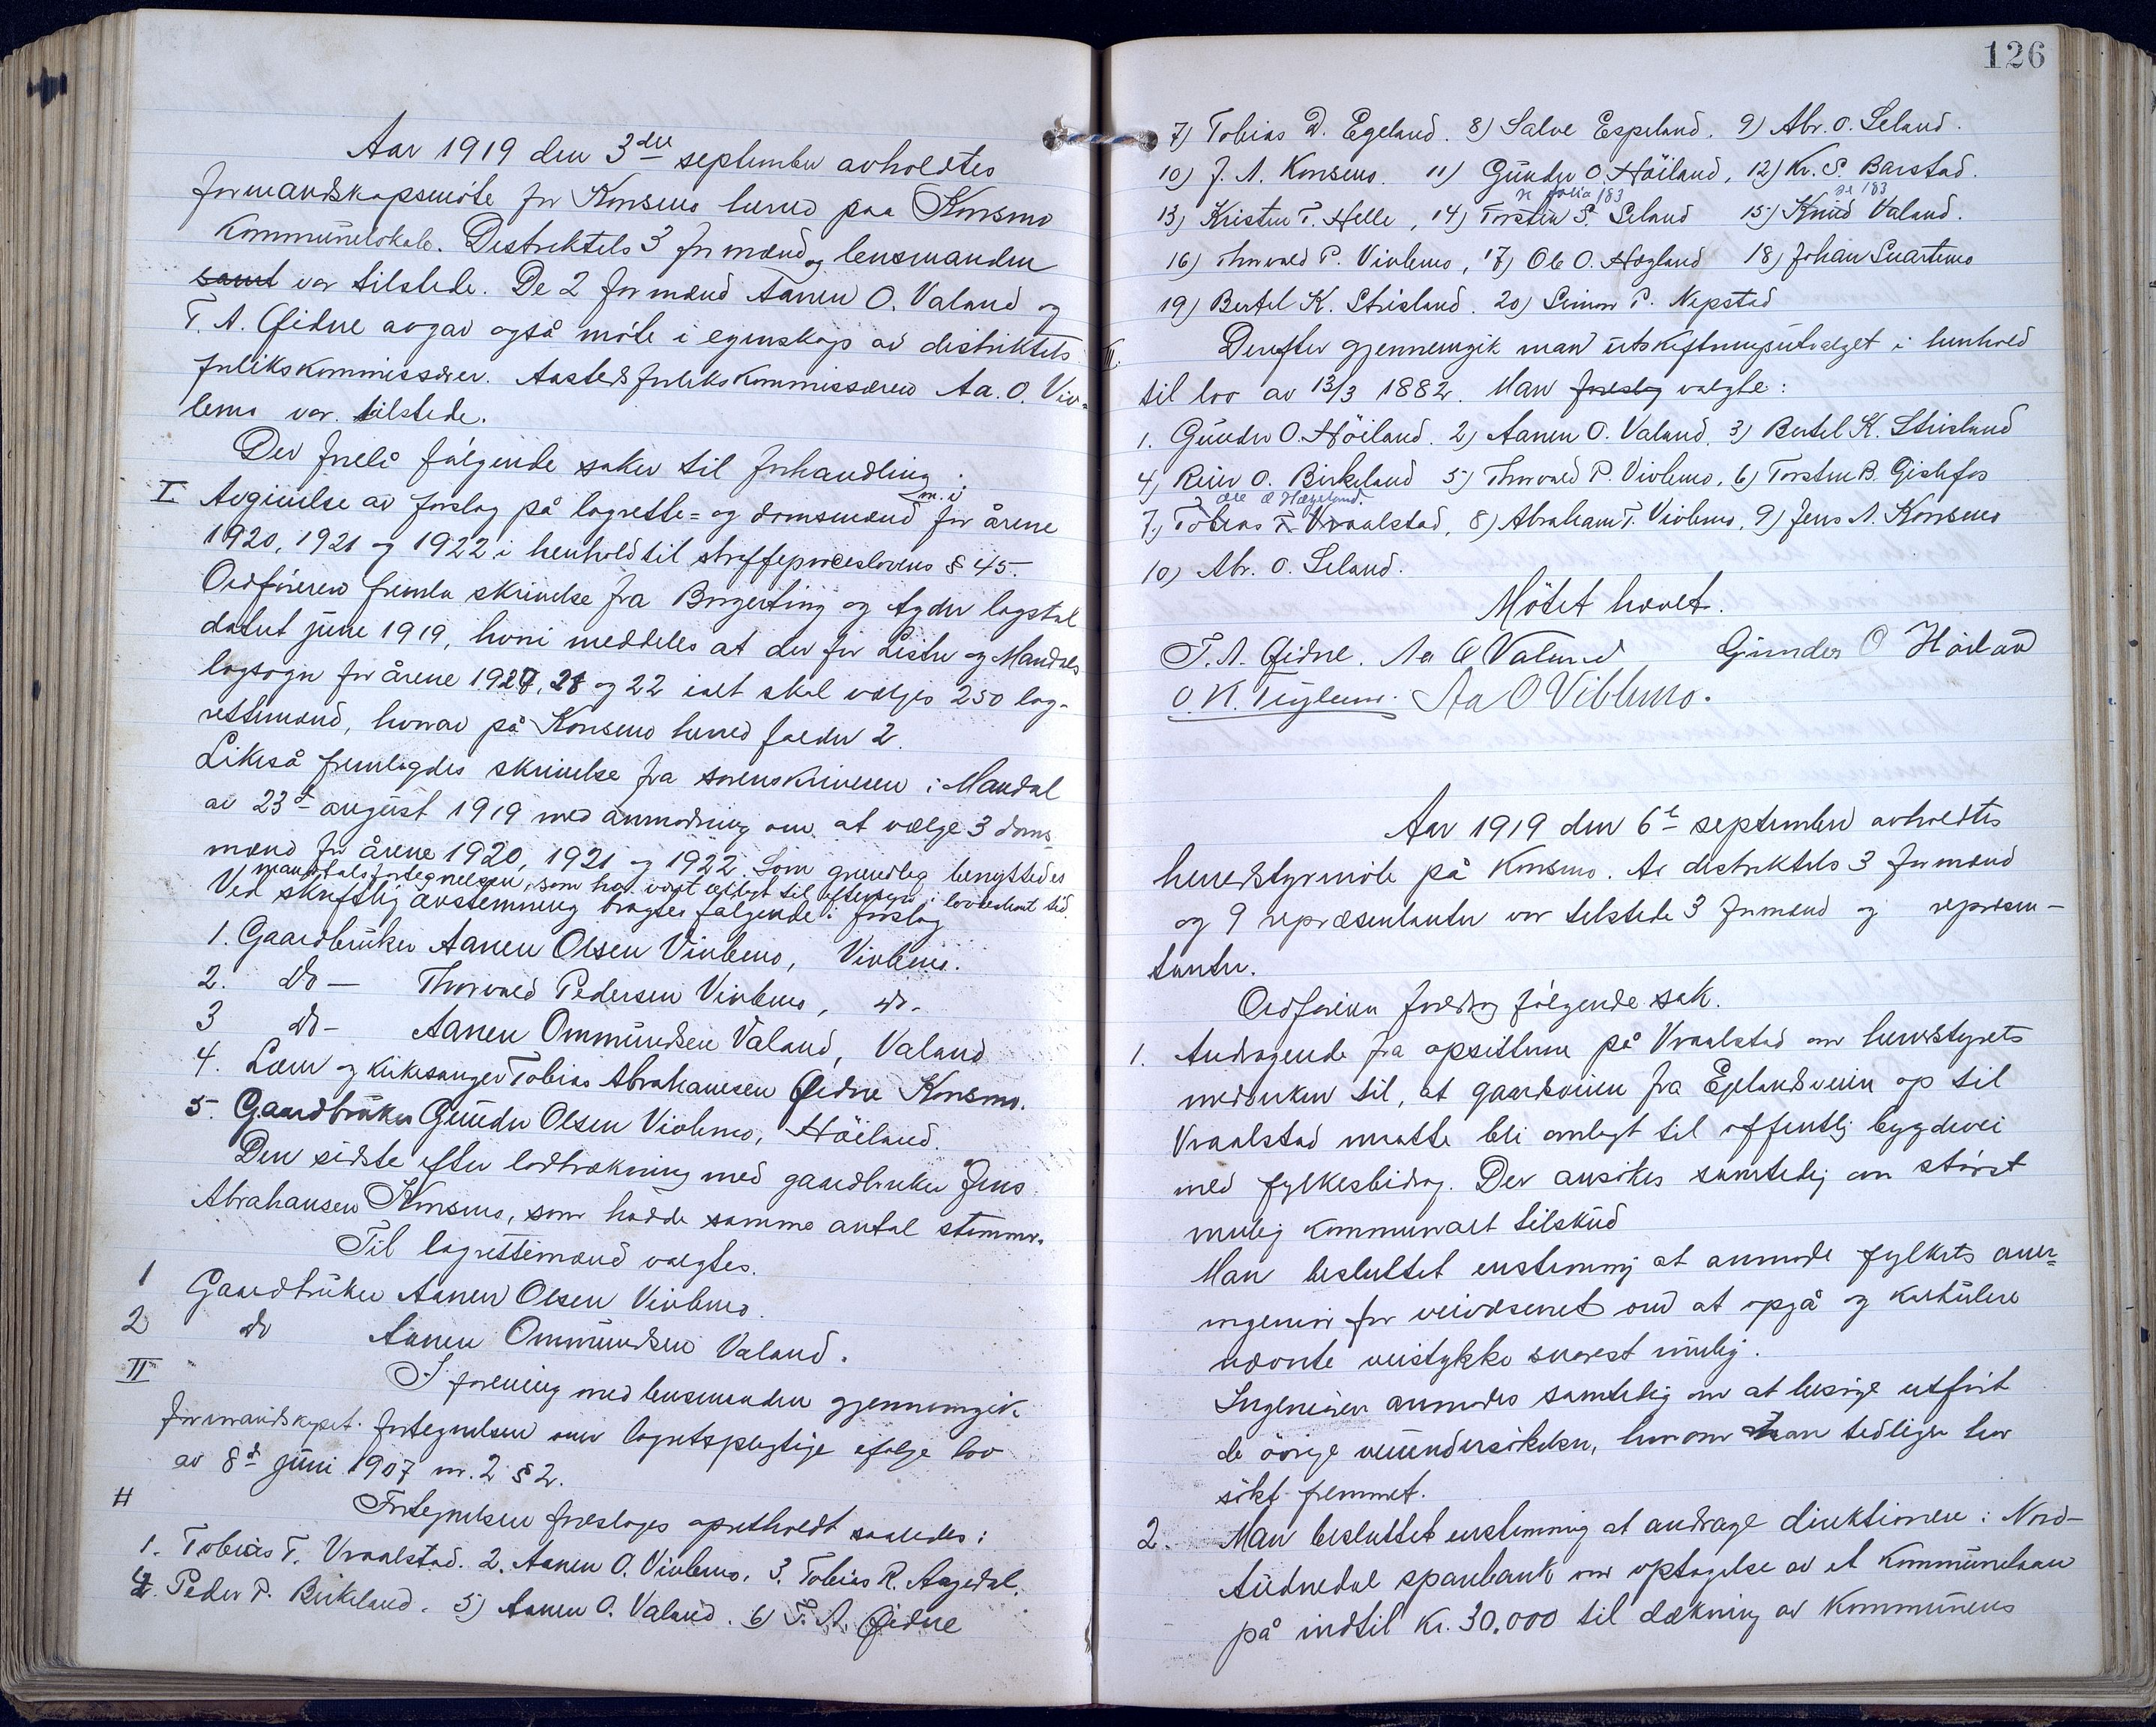 Aar 1919 den 3die september avholdtes
formandskapsmöte for Konsmo herred paa Konsmo
kommunelokale. Distriktets 3 formænd og lensmanden
samt var tilstede. De 2 formænd Aanen O. Valand og
T. A. Øidne avgav også möte i egenskap av distriktets
forlikskommissærer. Aasteds forlikskommissæren Aa. O. Viv=
lemo var tilstede.
Der forelå følgende saker til forhandling:
I Avgivelse av forslag på lagrette= og domsmænd m. v. for årene
1920, 1921 og 1922 i henhold til straffeprocesslovens § 45.
Ordføreren fremla skrivelse fra Borgerting og Agder lagstol
datert june 1919, hvori meddeles at der for Lister og Mandals
lagsogn for årene 1920, 21 og 22 ialt skal vælges 250 lag-
rettemænd, hvorav på Konsmo herred falder 2.
Likeså fremlagdes skrivelse fra sorenskriveren i Mandal
av 23d august 1919 med anmodning om at vælge 3 doms-
mænd for årene 1920, 1921 og 1922. Som grundlag benyttedes
mandtalsfortegnelsen, som har vært utlagt til eftersyn i lovbestemt tid.
Ved skriftlig avstemning bragtes følgende i forslag
1. Gaardbruker Aanen Olsen Vivlemo, Vivlemo.
2. do — Thorvald Pedersen Vivlemo, do.
3 do - Aanen Ommundsen Valand, Valand
4. Lærer og kirkesanger Tobias Abrahamsen Øidne Konsmo.
5. Gaardbruker Gunder Olsen Vivlemo, Höiland.
Den sidste efter lodtrækning med gaardbruker Jens
Abrahamsen Konsmo, som hadde samme antal stemmer.
Til lagrettemænd valgtes.
1 Gaardbruker Aanen Olsen Vivlemo.
2 do Aanen Ommundsen Valand.
II I forening med lensmanden gjennemgik
formandskapet fortegnelsen over lagretspligtige ifølge lov
av 8d juni 1907 nr. 2 § 2.
H Fortegnelsen foreslages opretholdt saaledes:
1. Tobias T. Vraalstad. 2. Aanen O. Vivlemo. 3. Tobias R. Aagedal.
4. Peder P. Birkeland. 5) Aanen O. Valand. 6) T. A. Øidne
126
7) Tobias D. Egeland. 8) Salve Espeland. 9) Abr. O. Seland.
10) J. A. Konsmo. 11) Gunder O. Höiland, 12) Kr. S. Barstad.
se folia 183 se 183
13) Kristen T. Helle, 14) Torstein S. Seland 15) Knud Valand.
16) Thorvald P. Vivlemo, 17) Ole O. Hægland 18) Johan Snartemo
19) Bertel K. Strisland. 20) Simon P. Nepstad
III. Derefter gjennemgik man utskiftningsutvalget i henhold
til lov av 13/3 1882. Man foreslog valgte:
1. Gunder O. Höiland. 2) Aanen O. Valand. 3) Bertel K. Strisland
4) Reier O. Birkeland 5) Thorvald P. Vivlemo, 6) Torstein B. Gislefos
Ole O Hægeland.
7.) Tobias T. Vraalstad, 8) Abraham T. Vivlemo, 9) Jens A. Konsmo
10) Abr. O. Seland.
Mötet hævet.
T. A. Øidne. Aa O Valand Gunder O Höiland
O. K. Aa O Vivlemo.
Aar 1919 den 6te september avholdtes
herredsstyrmöte på Konsmo. Av distriktets 3 formænd
og 9 repræsentanter var tilstede 3 formænd og repræsen-
tanter.
Ordføreren foredrog følgende sak.
1. Andragende fra opsitterne på Vraalstad om herredsstyrets
medvirken til, at gaardsveien fra Egelandsveien op til
Vraalstad maatte bli omlagt til offentlig bygdevei
med fylkesbidrag. Der ansökes samtidig om störst
mulig kommunalt tilskud
Man besluttet enstemmig at anmode fylkets aver=
ingeniör for veivæsenet om at opgå og kartulere
nævnte veistykke snarest mulig.
Ingeniören anmodes samtidig om at besörge utfört
de övrige veiundersökelser, hvorom man tidligere har
sökt fremmet.
2. Man besluttet enstemmig at andrage direktionen i Nord-
Audnedal sparebank om optagelse av et kommunelaan
på indtil Kr. 30.000 til dækning av kommunens